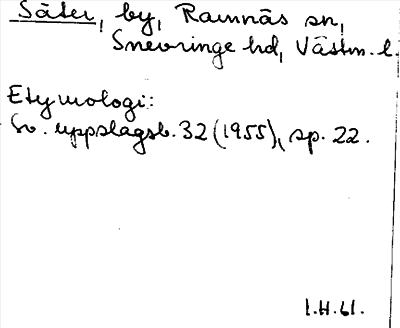 Säter, by, Ramnäs sn,
Snevringe hd, Västm. l.
Etymologi:
Sv. uppslagsb. 32 (1955), sp. 22.
I.H.61.